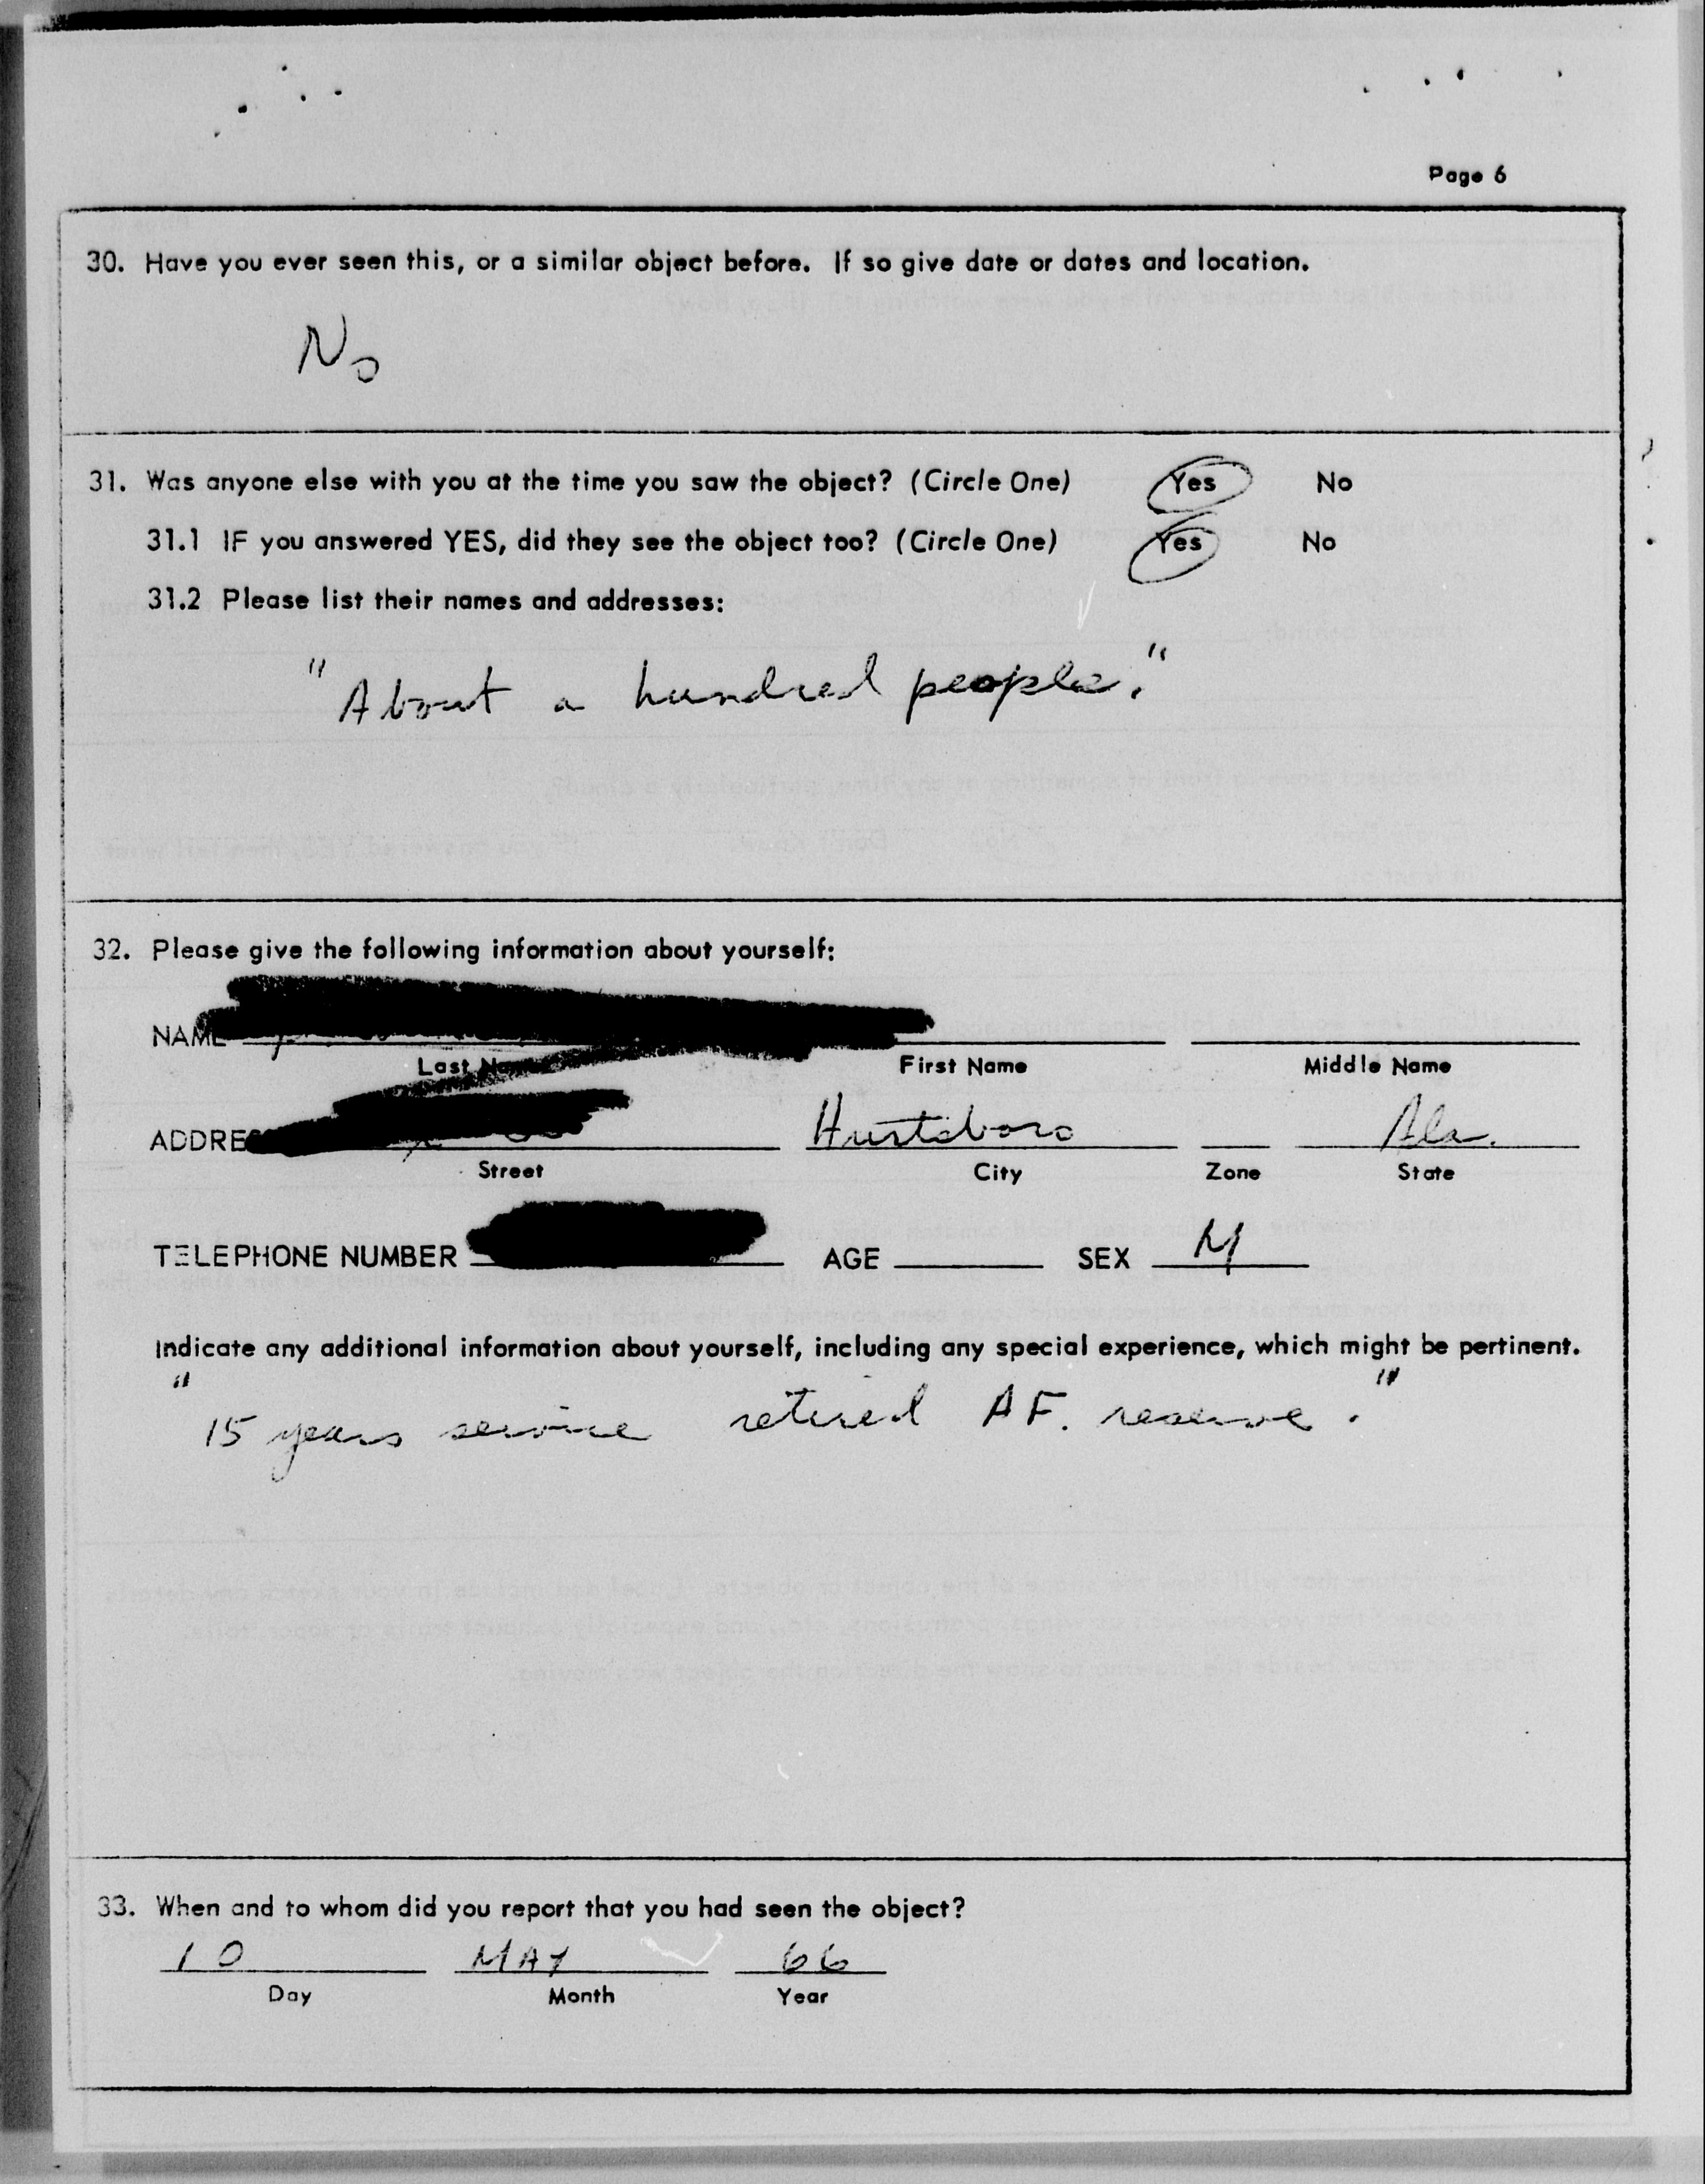 Page 6
30. Have you ever seen this, or a similar object before. If so give date or dates and location.
No
31. Was anyone else with you at the time you saw the object? (Circle One) Yes No
31.1 IF you answered YES, did they see the object too? (Circle One) Yes No
31.2 Please list their names and addresses:
"About a hundred people."
32. Please give the following information about yourself:
NAME
Last Name First Name Middle Name
ADDRES Hurtsboro Ala.
Street City Zone State
TELEPHONE NUMBER AGE SEX M
Indicate any additional information about yourself, including any special experience, which might be pertinent.
"15 years service retired AF. reserve."
33. When and to whom did you report that you had seen the object?
10 MAY 66
Day Month Year